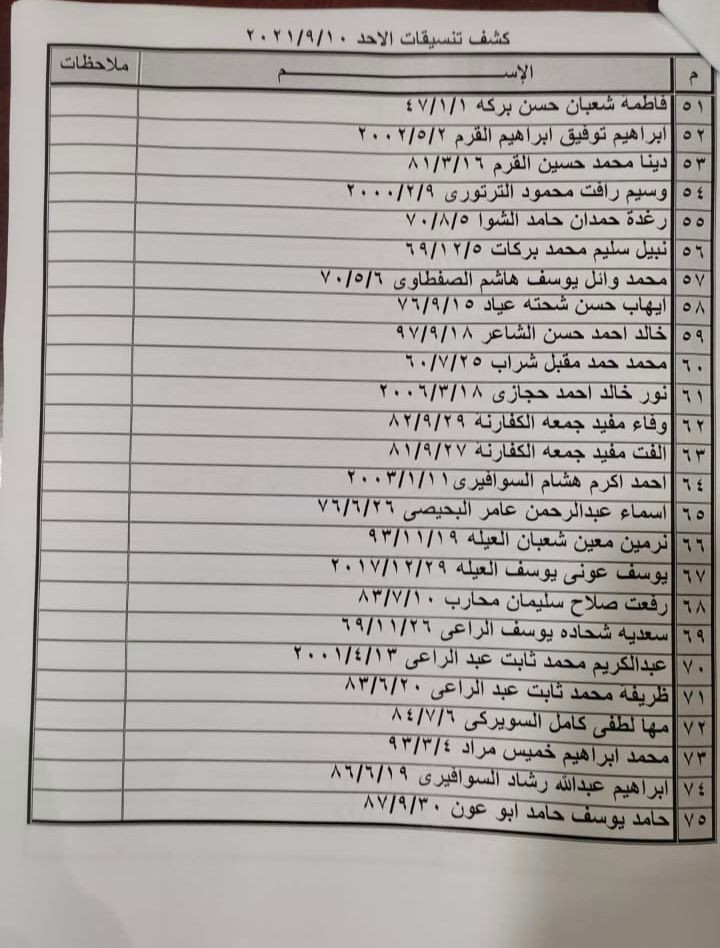 كشف تنسيقات الاحد ٢٠٢١/٩/١٠
م الإســـــــم ملاحظات
٥١ فاطمة شعبان حسن بركه ٤٧/١/١
٥٢ ابراهيم توفيق ابراهيم القرم ٢٠٠٢/٥/٢
٥٣ دينا محمد حسين القرم ٨١/٣/١٦
٥٤ وسيم رافت محمود الترتورى ٢٠٠٠/٢/٩
٥٥ رغدة حمدان حامد الشوا ٧٠/٨/٥
٥٦ نبيل سليم محمد بركات ٦٩/١٢/٥
٥٧ محمد وائل يوسف هاشم الصفطاوى ٧٠/٥/٦
٥٨ ايهاب حسن شحته عياد ٧٦/٩/١٥
٥٩ خالد احمد حسن الشاعر ٩٧/٩/١٨
٦٠ محمد حمد مقبل شراب ٦٠/٧/٢٥
٦١ نور خالد احمد حجازى ٢٠٠٦/٣/١٨
٦٢ وفاء مفيد جمعه الكفارنة ٨٢/٩/٢٩
٦٣ الفت مفيد جمعه الكفارنة ٨١/٩/٢٧
٦٤ احمد اكرم هشام السوافيرى ٢٠٠٣/١/١١
٦٥ اسماء عبدالرحمن عامر البحيصى ٧٦/٦/٢٦
٦٦ نرمين معين شعبان العيله ٩٣/١١/١٩
٦٧ يوسف عونى يوسف العيله ٢٠١٧/١٢/٢٩
٦٨ رفعت صلاح سليمان محارب ٨٣/٧/١٠
٦٩ سعديه شحاده يوسف الراعى ٦٩/١١/٢٦
٧٠ عبدالكريم محمد ثابت عبد الراعى ٢٠٠١/٤/١٣
٧١ ظريفة محمد ثابت عبد الراعى ٨٣/٦/٢٠
٧٢ مها لطفى كامل السويركى ٨٤/٧/٦
٧٣ محمد ابراهيم خميس مراد ٩٣/٣/٤
٧٤ ابراهيم عبدالله رشاد السوافيرى ٨٦/٦/١٩
٧٥ حامد يوسف حامد ابو عون ٨٧/٩/٣٠